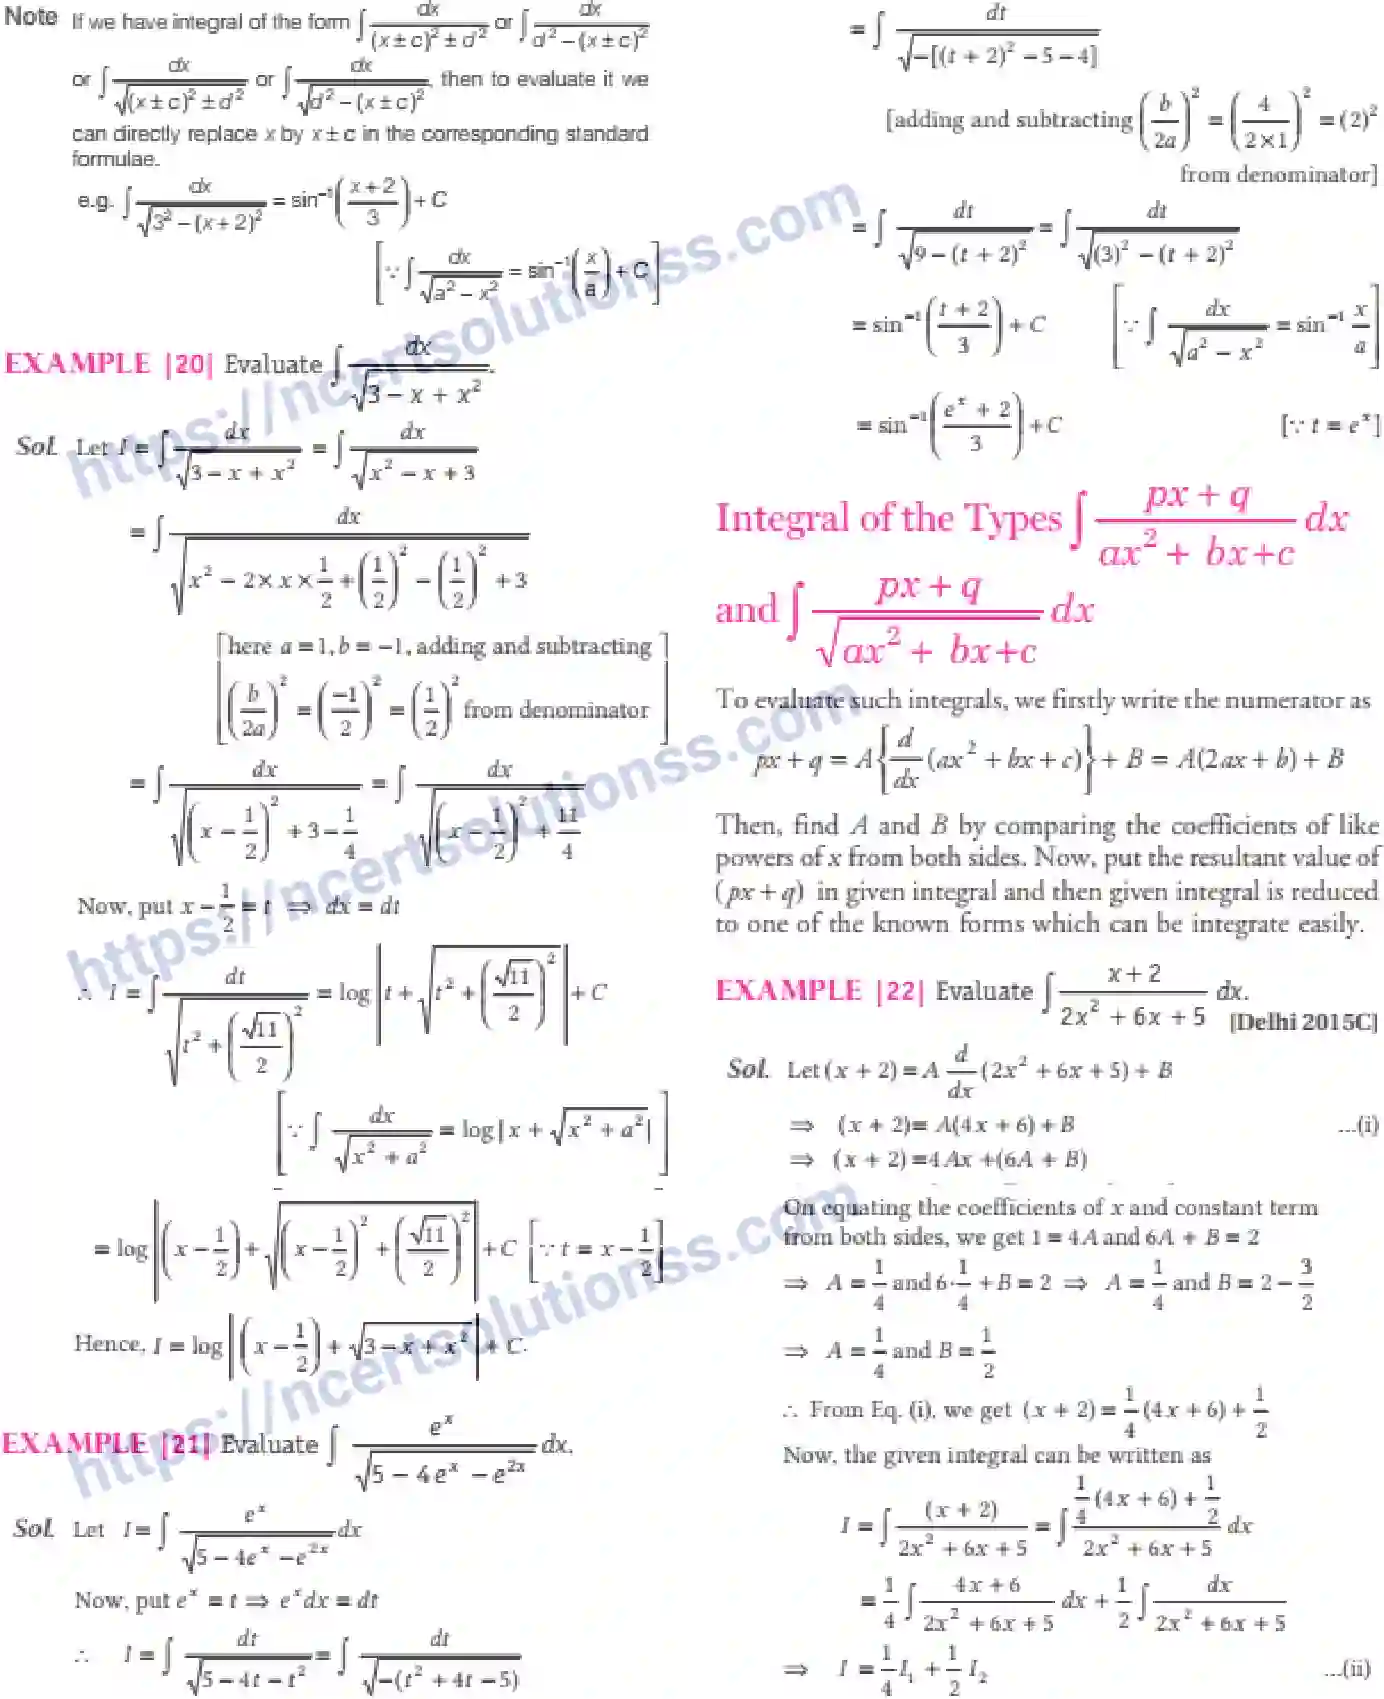 Note If we have integral of the form ∫ dx/((x ± c)² ± d²) or ∫ dx/(d² − (x ± c)²)
or ∫ dx/√((x ± c)² ± d²) or ∫ dx/√(d² − (x ± c)²), then to evaluate it we
can directly replace x by x ± c in the corresponding standard
formulae.
e.g. ∫ dx/√(3² − (x + 2)²) = sin⁻¹((x + 2)/3) + C
[∵ ∫ dx/√(a² − x²) = sin⁻¹(x/a) + C]
EXAMPLE |20| Evaluate ∫ dx/√(3 − x + x²).
Sol. Let I = ∫ dx/√(3 − x + x²) = ∫ dx/√(x² − x + 3)
= ∫ dx/√(x² − 2 × x × 1/2 + (1/2)² − (1/2)² + 3)
[here a = 1, b = −1, adding and subtracting
(b/2a)² = (−1/2)² = (1/2)² from denominator]
= ∫ dx/√((x − 1/2)² + 3 − 1/4) = ∫ dx/√((x − 1/2)² + 11/4)
Now, put x − 1/2 = t ⇒ dx = dt
∴ I = ∫ dt/√(t² + (√11/2)²) = log |t + √(t² + (√11/2)²)| + C
[∵ ∫ dx/√(x² + a²) = log | x + √(x² + a²) |]
= log |(x − 1/2) + √((x − 1/2)² + (√11/2)²)| + C [∵ t = x − 1/2]
Hence, I = log |(x − 1/2) + √(3 − x + x²)| + C.
EXAMPLE |21| Evaluate ∫ eˣ/√(5 − 4eˣ − e²ˣ) dx.
Sol. Let I = ∫ eˣ/√(5 − 4eˣ − e²ˣ) dx
Now, put eˣ = t ⇒ eˣ dx = dt
∴ I = ∫ dt/√(5 − 4t − t²) = ∫ dt/√(−(t² + 4t − 5))
= ∫ dt/√(−[(t + 2)² − 5 − 4])
[adding and subtracting (b/2a)² = (4/(2 × 1))² = (2)²
from denominator]
= ∫ dt/√(9 − (t + 2)²) = ∫ dt/√((3)² − (t + 2)²)
= sin⁻¹((t + 2)/3) + C [∵ ∫ dx/√(a² − x²) = sin⁻¹ x/a]
= sin⁻¹((eˣ + 2)/3) + C [∵ t = eˣ]
Integral of the Types ∫ (px + q)/(ax² + bx + c) dx
and ∫ (px + q)/√(ax² + bx + c) dx
To evaluate such integrals, we firstly write the numerator as
px + q = A{d/dx (ax² + bx + c)} + B = A(2ax + b) + B
Then, find A and B by comparing the coefficients of like
powers of x from both sides. Now, put the resultant value of
(px + q) in given integral and then given integral is reduced
to one of the known forms which can be integrate easily.
EXAMPLE |22| Evaluate ∫ (x + 2)/(2x² + 6x + 5) dx.
[Delhi 2015C]
Sol. Let (x + 2) = A d/dx (2x² + 6x + 5) + B
⇒ (x + 2) = A(4x + 6) + B ...(i)
⇒ (x + 2) = 4Ax + (6A + B)
On equating the coefficients of x and constant term
from both sides, we get 1 = 4A and 6A + B = 2
⇒ A = 1/4 and 6·1/4 + B = 2 ⇒ A = 1/4 and B = 2 − 3/2
⇒ A = 1/4 and B = 1/2
∴ From Eq. (i), we get (x + 2) = 1/4 (4x + 6) + 1/2
Now, the given integral can be written as
I = ∫ (x + 2)/(2x² + 6x + 5) = ∫ (1/4 (4x + 6) + 1/2)/(2x² + 6x + 5) dx
= 1/4 ∫ (4x + 6)/(2x² + 6x + 5) dx + 1/2 ∫ dx/(2x² + 6x + 5)
⇒ I = 1/4 I₁ + 1/2 I₂ ...(ii)
https://ncertsolutionss.com
https://ncertsolutionss.com
https://ncertsolutionss.com